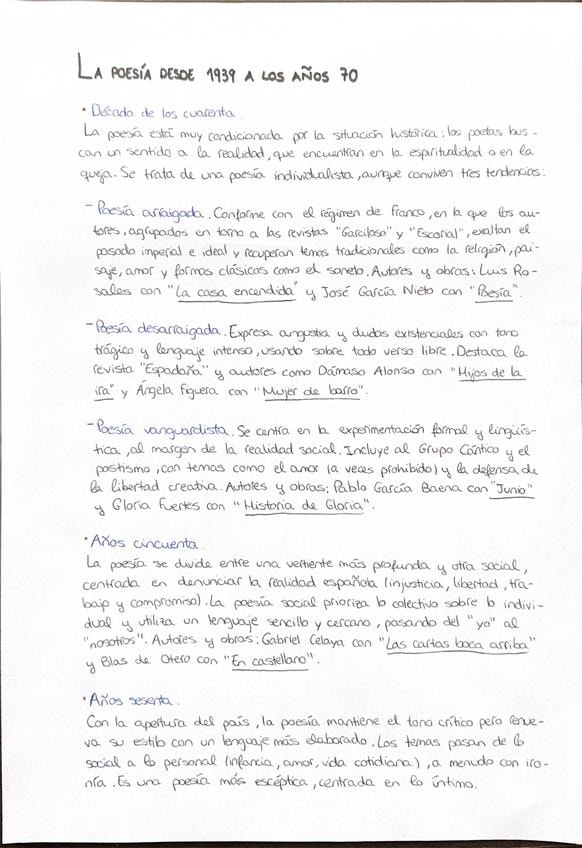 LA POESÍA DESDE 1939 A LOS AÑOS 70
• Década de los cuarenta.
La poesía está muy condicionada por la situación histórica: los poetas bus-
can un sentido a la realidad, que encuentran en la espiritualidad o en la
queja. Se trata de una poesía individualista, aunque conviven tres tendencias:
- Poesía arraigada. Conforme con el régimen de Franco, en la que los au-
tores, agrupados en torno a las revistas "Garcilaso" y "Escorial", exaltan el
pasado imperial e ideal y recuperan temas tradicionales como la religión, pai-
saje, amor y formas clásicas como el soneto. Autores y obras: Luis Ro-
sales con "La casa encendida" y José García Nieto con "Poesía".
- Poesía desarraigada. Expresa angustia y dudas existenciales con tono
trágico y lenguaje intenso, usando sobre todo verso libre. Destaca la
revista "Espadaña" y autores como Dámaso Alonso con "Hijos de la
ira" y Ángela Figuera con "Mujer de barro".
- Poesía vanguardista. Se centra en la experimentación formal y lingüís-
tica, al margen de la realidad social. Incluye al Grupo Cántico y el
postismo, con temas como el amor (a veces prohibido) y la defensa de
la libertad creativa. Autores y obras: Pablo García Baena con "Junio"
y Gloria Fuertes con "Historia de Gloria".
• Años cincuenta.
La poesía se divide entre una vertiente más profunda y otra social,
centrada en denunciar la realidad española (injusticia, libertad, tra-
bajo y compromiso). La poesía social prioriza lo colectivo sobre lo indivi-
dual y utiliza un lenguaje sencillo y cercano, pasando del "yo" al
"nosotros". Autores y obras: Gabriel Celaya con "Las cartas boca arriba"
y Blas de Otero con "En castellano".
• Años sesenta.
Con la apertura del país, la poesía mantiene el tono crítico pero renue-
va su estilo con un lenguaje más elaborado. Los temas pasan de lo
social a lo personal (infancia, amor, vida cotidiana), a menudo con iro-
nía. Es una poesía más escéptica, centrada en lo íntimo.